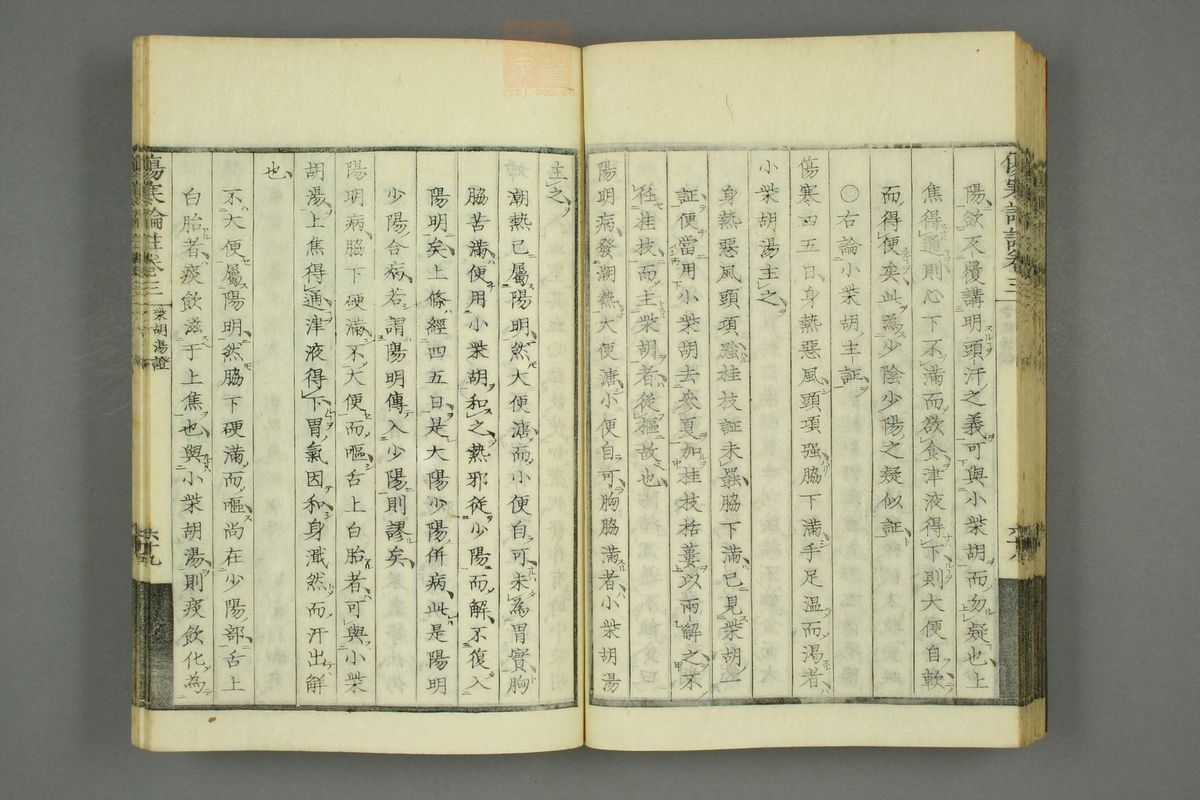 陽、欲灭屢講明頭汗之義可與小柴胡而勿疑也、上
焦得通則心下不滿而欲食津液得下則大便自軟
而得便矣、此為少陰少陽之疑似証
〇右論小柴胡主証
傷寒四五日、身熱惡風、頭項强、脇下滿、手足温而渴者、
小柴胡湯主之、
身熱惡風頭項强桂枝証未罷脇下滿已見柴胡一
証便當用小柴胡去參夏加桂枝栝蔞以兩解之、不
任桂枝而主柴胡者、從樞故也
陽明病、發潮熱、大便溏、小便自可、胸脇滿者、小柴胡湯
主之、
潮熱已屬陽明、然大便溏而小便自可、未為胃實、胸
脇苦滿、便用小柴胡和之、熱邪從少陽而解、不復入
陽明矣、上條經四五日、是大陽少陽併病、此是陽明
少陽合病、若謂陽明傳入少陽則謬矣、
陽明病、脇下硬滿、不大便而嘔、舌上白胎者、可與小柴
胡湯、上焦得通、津液得下、胃氣因和、身濈然而汗出解
也、
不大便屬陽明、然脇下硬滿而嘔、尚在少陽部、舌上
白胎者、痰飲滋于上焦也、與小柴胡湯、則痰飲化為
傷寒論註卷三
柴胡湯證
六十九